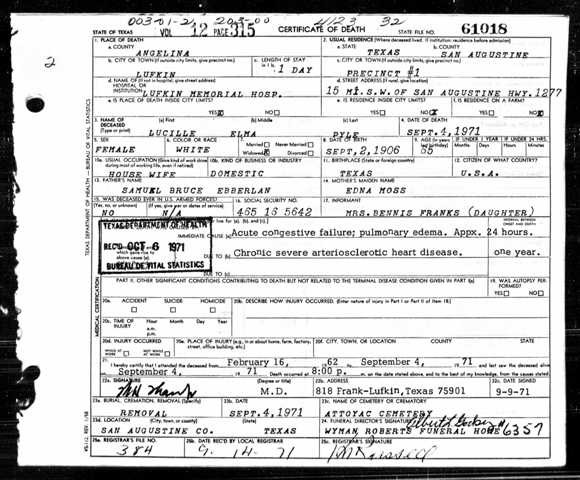 003-01-21 203-00 4123 32
STATE OF TEXAS VOL 12 PAGE 315 CERTIFICATE OF DEATH STATE FILE NO. 61018
1. PLACE OF DEATH 2. USUAL RESIDENCE (Where deceased lived. If institution: residence before admission)
a. COUNTY a. STATE b. COUNTY
ANGELINA TEXAS SAN AUGUSTINE
b. CITY OR TOWN (If outside city limits, give precinct no.) c. LENGTH OF STAY c. CITY OR TOWN (If outside city limits, give precinct no.)
LUFKIN 1 DAY PRECINCT #1
d. NAME OF (If not in hospital, give street address) d. STREET ADDRESS (If rural, give location)
HOSPITAL OR
INSTITUTION LUFKIN MEMORIAL HOSP. 15 MI.S.W.OF SAN AUGUSTINE HWY.1277
e. IS PLACE OF DEATH INSIDE CITY LIMITS? e. IS RESIDENCE INSIDE CITY LIMITS? f. IS RESIDENCE ON A FARM?
YES NO YES NO YES NO
3. NAME OF DECEASED (a) First (b) Middle (c) Last 4. DATE OF DEATH
(Type or print) LUCILLE ELMA PYLE SEPT.4,1971
5. SEX 6. COLOR OR RACE 7. Married Never Married 8. DATE OF BIRTH 9. AGE IF UNDER 1 YEAR IF UNDER 24 HRS.
FEMALE WHITE Widowed Divorced SEPT.2,1906 65 Months Days Hours Min.
10a. USUAL OCCUPATION (Give kind of work done 10b. KIND OF BUSINESS OR INDUSTRY 11. BIRTHPLACE (State or foreign country) 12. CITIZEN OF WHAT COUNTRY?
HOUSE WIFE DOMESTIC TEXAS U.S.A.
13. FATHER'S NAME 14. MOTHER'S MAIDEN NAME
SAMUEL BRUCE EBBERLAN EDNA MOSS
15. WAS DECEASED EVER IN U.S. ARMED FORCES? 16. SOCIAL SECURITY NO. 17. INFORMANT
(Yes, no, or unknown) (If yes, give war or dates of service)
NO N/A 465 16 5642 MRS.BENNIS FRANKS (DAUGHTER)
TEXAS DEPARTMENT OF HEALTH
REC'D OCT 6 1971
BUREAU OF VITAL STATISTICS
IMMEDIATE CAUSE (a) Acute congestive failure; pulmonary edema. Appx. 24 hours.
DUE TO (b) Chronic severe arteriosclerotic heart disease. one year.
DUE TO (c)
PART II. OTHER SIGNIFICANT CONDITIONS CONTRIBUTING TO DEATH BUT NOT RELATED TO THE TERMINAL DISEASE CONDITION GIVEN IN PART I(a) 19. WAS AUTOPSY PERFORMED?
YES NO
20a. ACCIDENT SUICIDE HOMICIDE 20b. DESCRIBE HOW INJURY OCCURRED. (Enter nature of injury in Part I or Part II of item 18)
20c. TIME OF INJURY Hour Month Day Year
a.m.
p.m.
20d. INJURY OCCURRED 20e. PLACE OF INJURY (e.g., in or about home, farm, factory, street, office building, etc.) 20f. CITY, TOWN, OR LOCATION COUNTY STATE
WHILE AT WORK NOT WHILE AT WORK
21. I hereby certify that I attended the deceased from February 16, 62 to September 4, 71 and last saw the deceased alive
September 4, 1971 Death occurred at 8:00 p. m. on the date stated above, and to the best of my knowledge, from the causes stated
22a. SIGNATURE (Degree or title) 22b. ADDRESS 22c. DATE SIGNED
M.D. 818 Frank-Lufkin,Texas 75901 9-9-71
23a. BURIAL, CREMATION, REMOVAL (Specify) 23b. DATE 23c. NAME OF CEMETERY OR CREMATORY
REMOVAL SEPT.4,1971 ATTOYAC CEMETERY
23d. LOCATION (City, town, or county) (State) 24. FUNERAL DIRECTOR'S SIGNATURE
SAN AUGUSTINE CO. TEXAS WYMAN ROBERTS FUNERAL HOME #6357
25a. REGISTRAR'S FILE NO. 25b. DATE REC'D BY LOCAL REGISTRAR 25c. REGISTRAR'S SIGNATURE
384 9-14-71
2
TEXAS DEPARTMENT OF HEALTH - BUREAU OF VITAL STATISTICS
MEDICAL CERTIFICATION